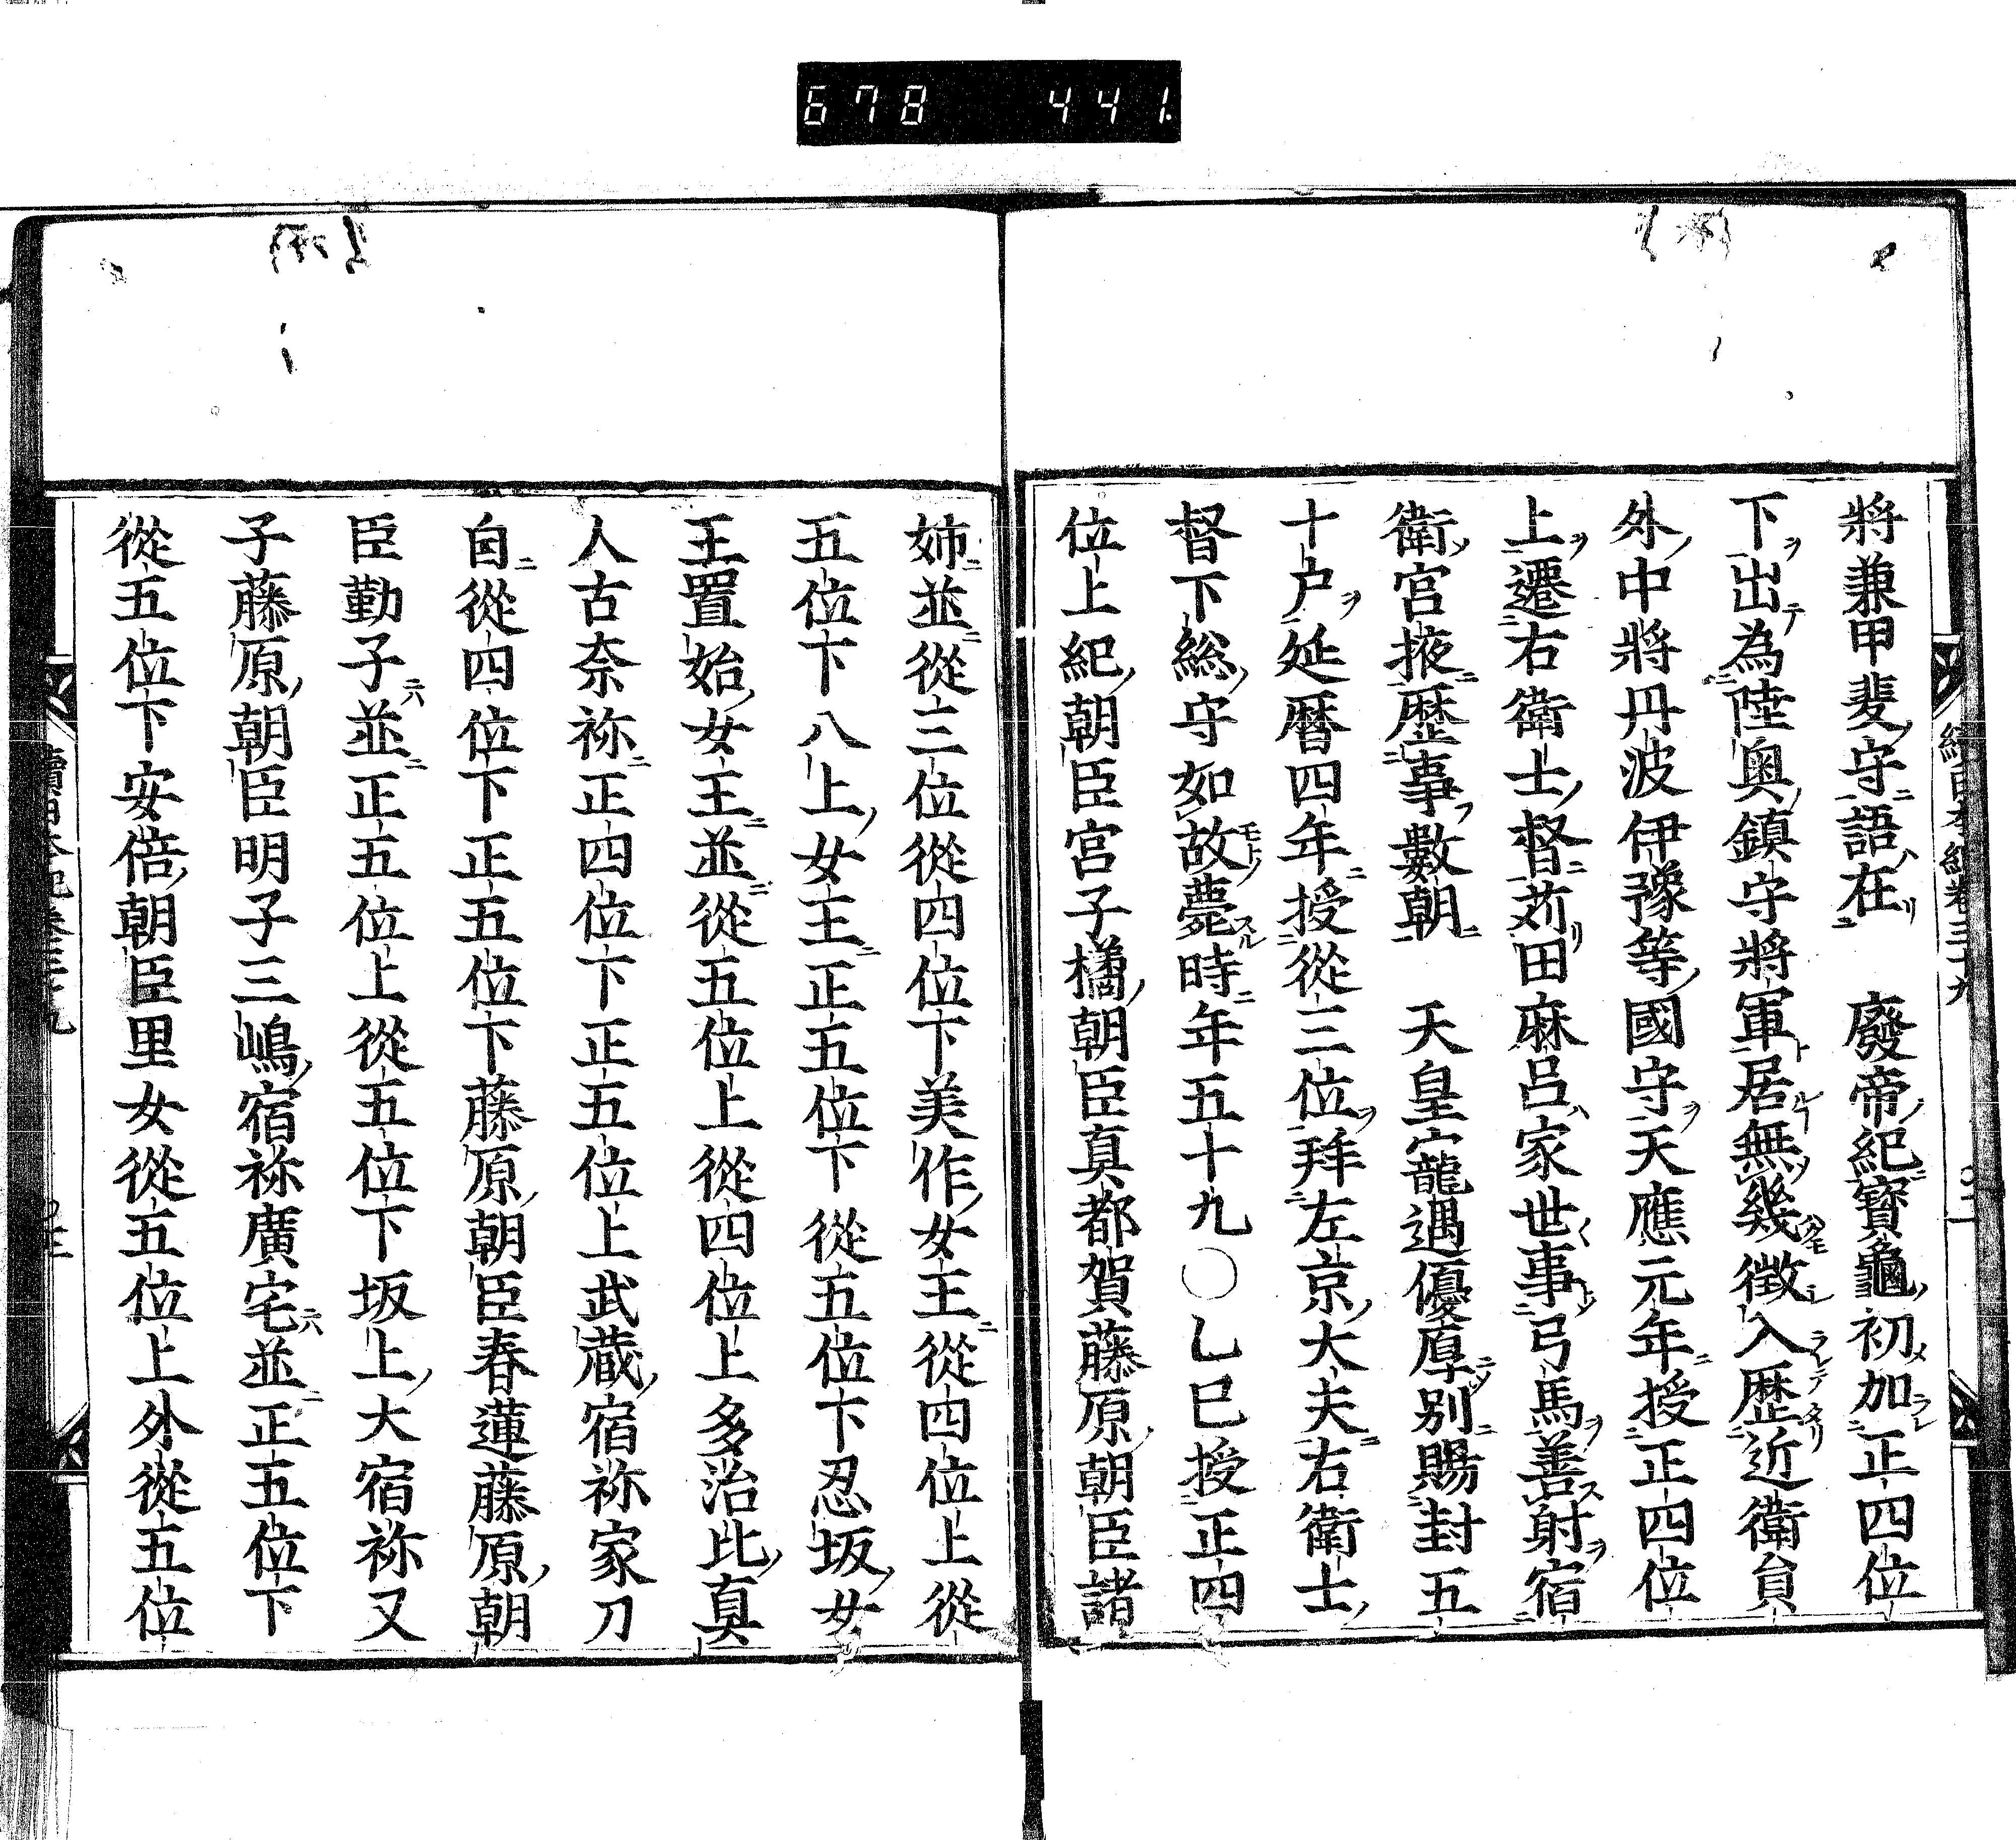 678 441
將兼甲斐守語在　廢帝紀寶龜初加正四位
下出為陸奧鎮守將軍居無幾徵入歷近衛貟
外中將丹波伊豫等國守天應元年授正四位
上遷右衛士督苅田麻呂家世事弓馬善射宿
衛宮掖歷事數朝　天皇寵遇優厚別賜封五
十户延曆四年授從三位拜左京大夫右衛士
督下総守如故薨時年五十九〇乙巳授正四
位上紀朝臣宮子橘朝臣真都賀藤原朝臣諸
姉並從三位從四位下美作女王從四位上從
五位下八上女王正五位下從五位下忍坂女
王置始女王並從五位上從四位上多治比真
人古奈祢正四位下正五位上武蔵宿祢家刀
自從四位下正五位下藤原朝臣春蓮藤原朝
臣勤子並正五位上從五位下坂上大宿祢又
子藤原朝臣明子三嶋宿祢廣宅並正五位下
從五位下安倍朝臣里女從五位上外從五位